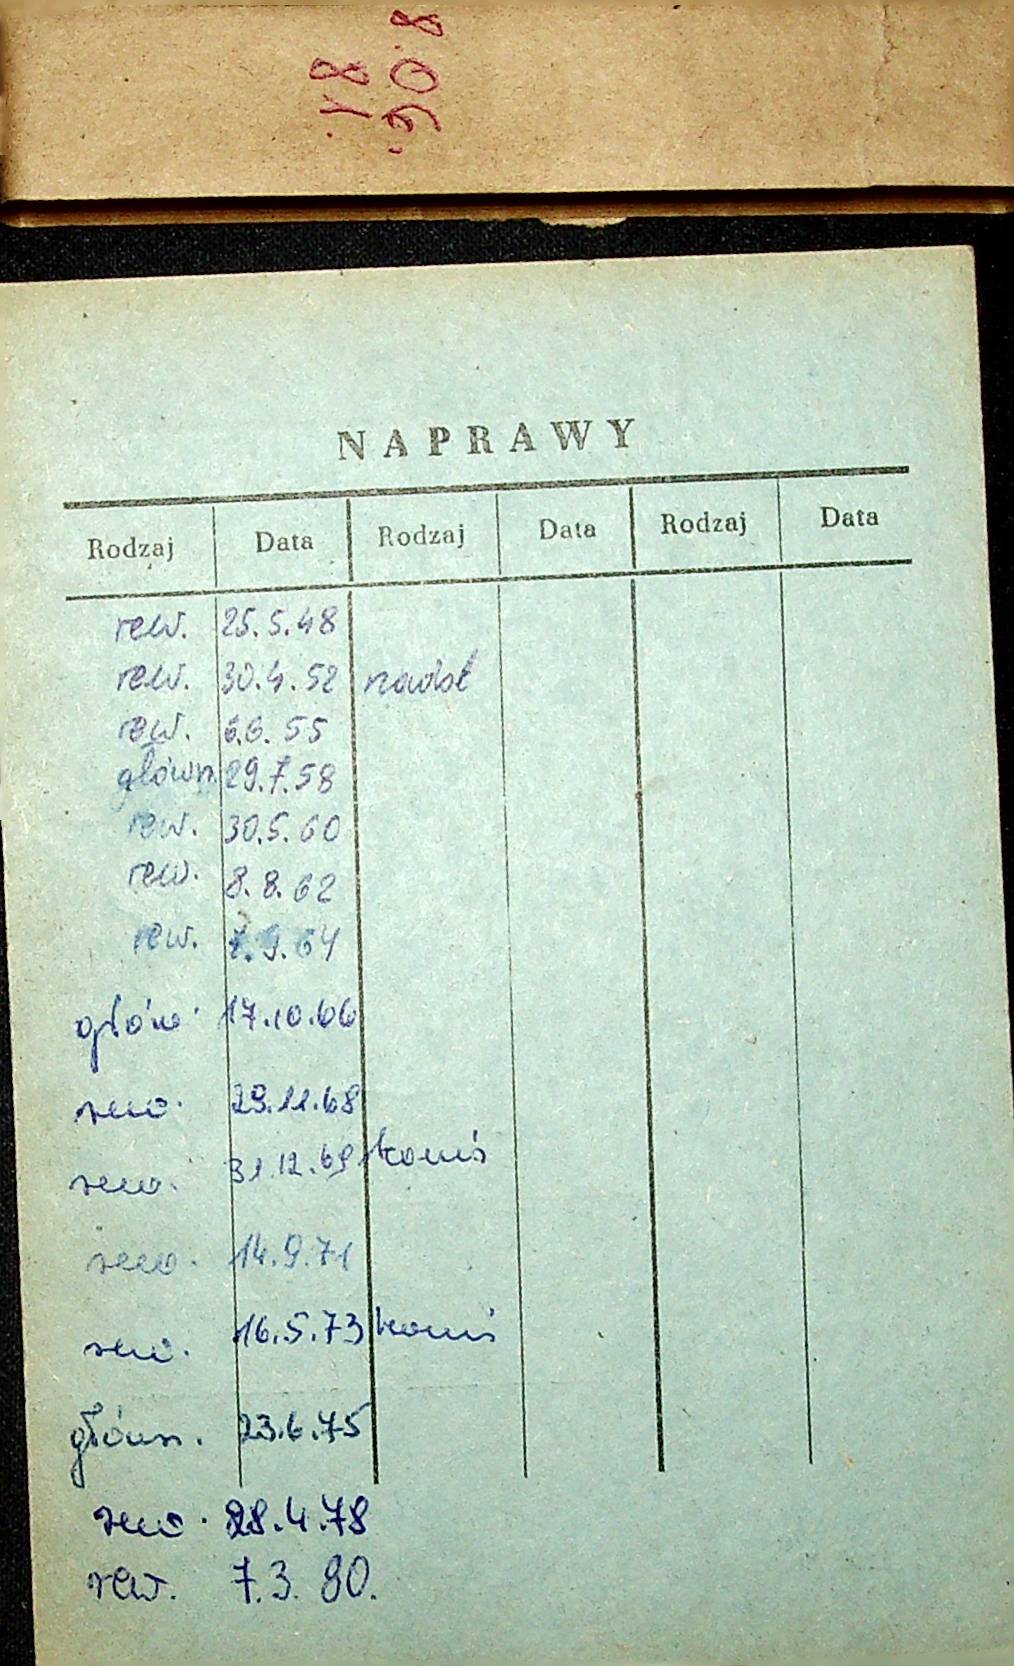 NAPRAWY
Rodzaj Data Rodzaj Data Rodzaj Data
rew. 25.5.48
rew. 30.4.52
rew. 6.6.55
główn. 29.7.58
rew. 30.5.60
rew. 8.8.62
rew. 7.9.64
główn. 17.10.66
rew. 29.11.68
rew. 31.12.69 komis
rew. 14.9.71
rew. 16.5.73 komis
główn. 23.6.75
rew. 28.4.78
rew. 7.3.80.